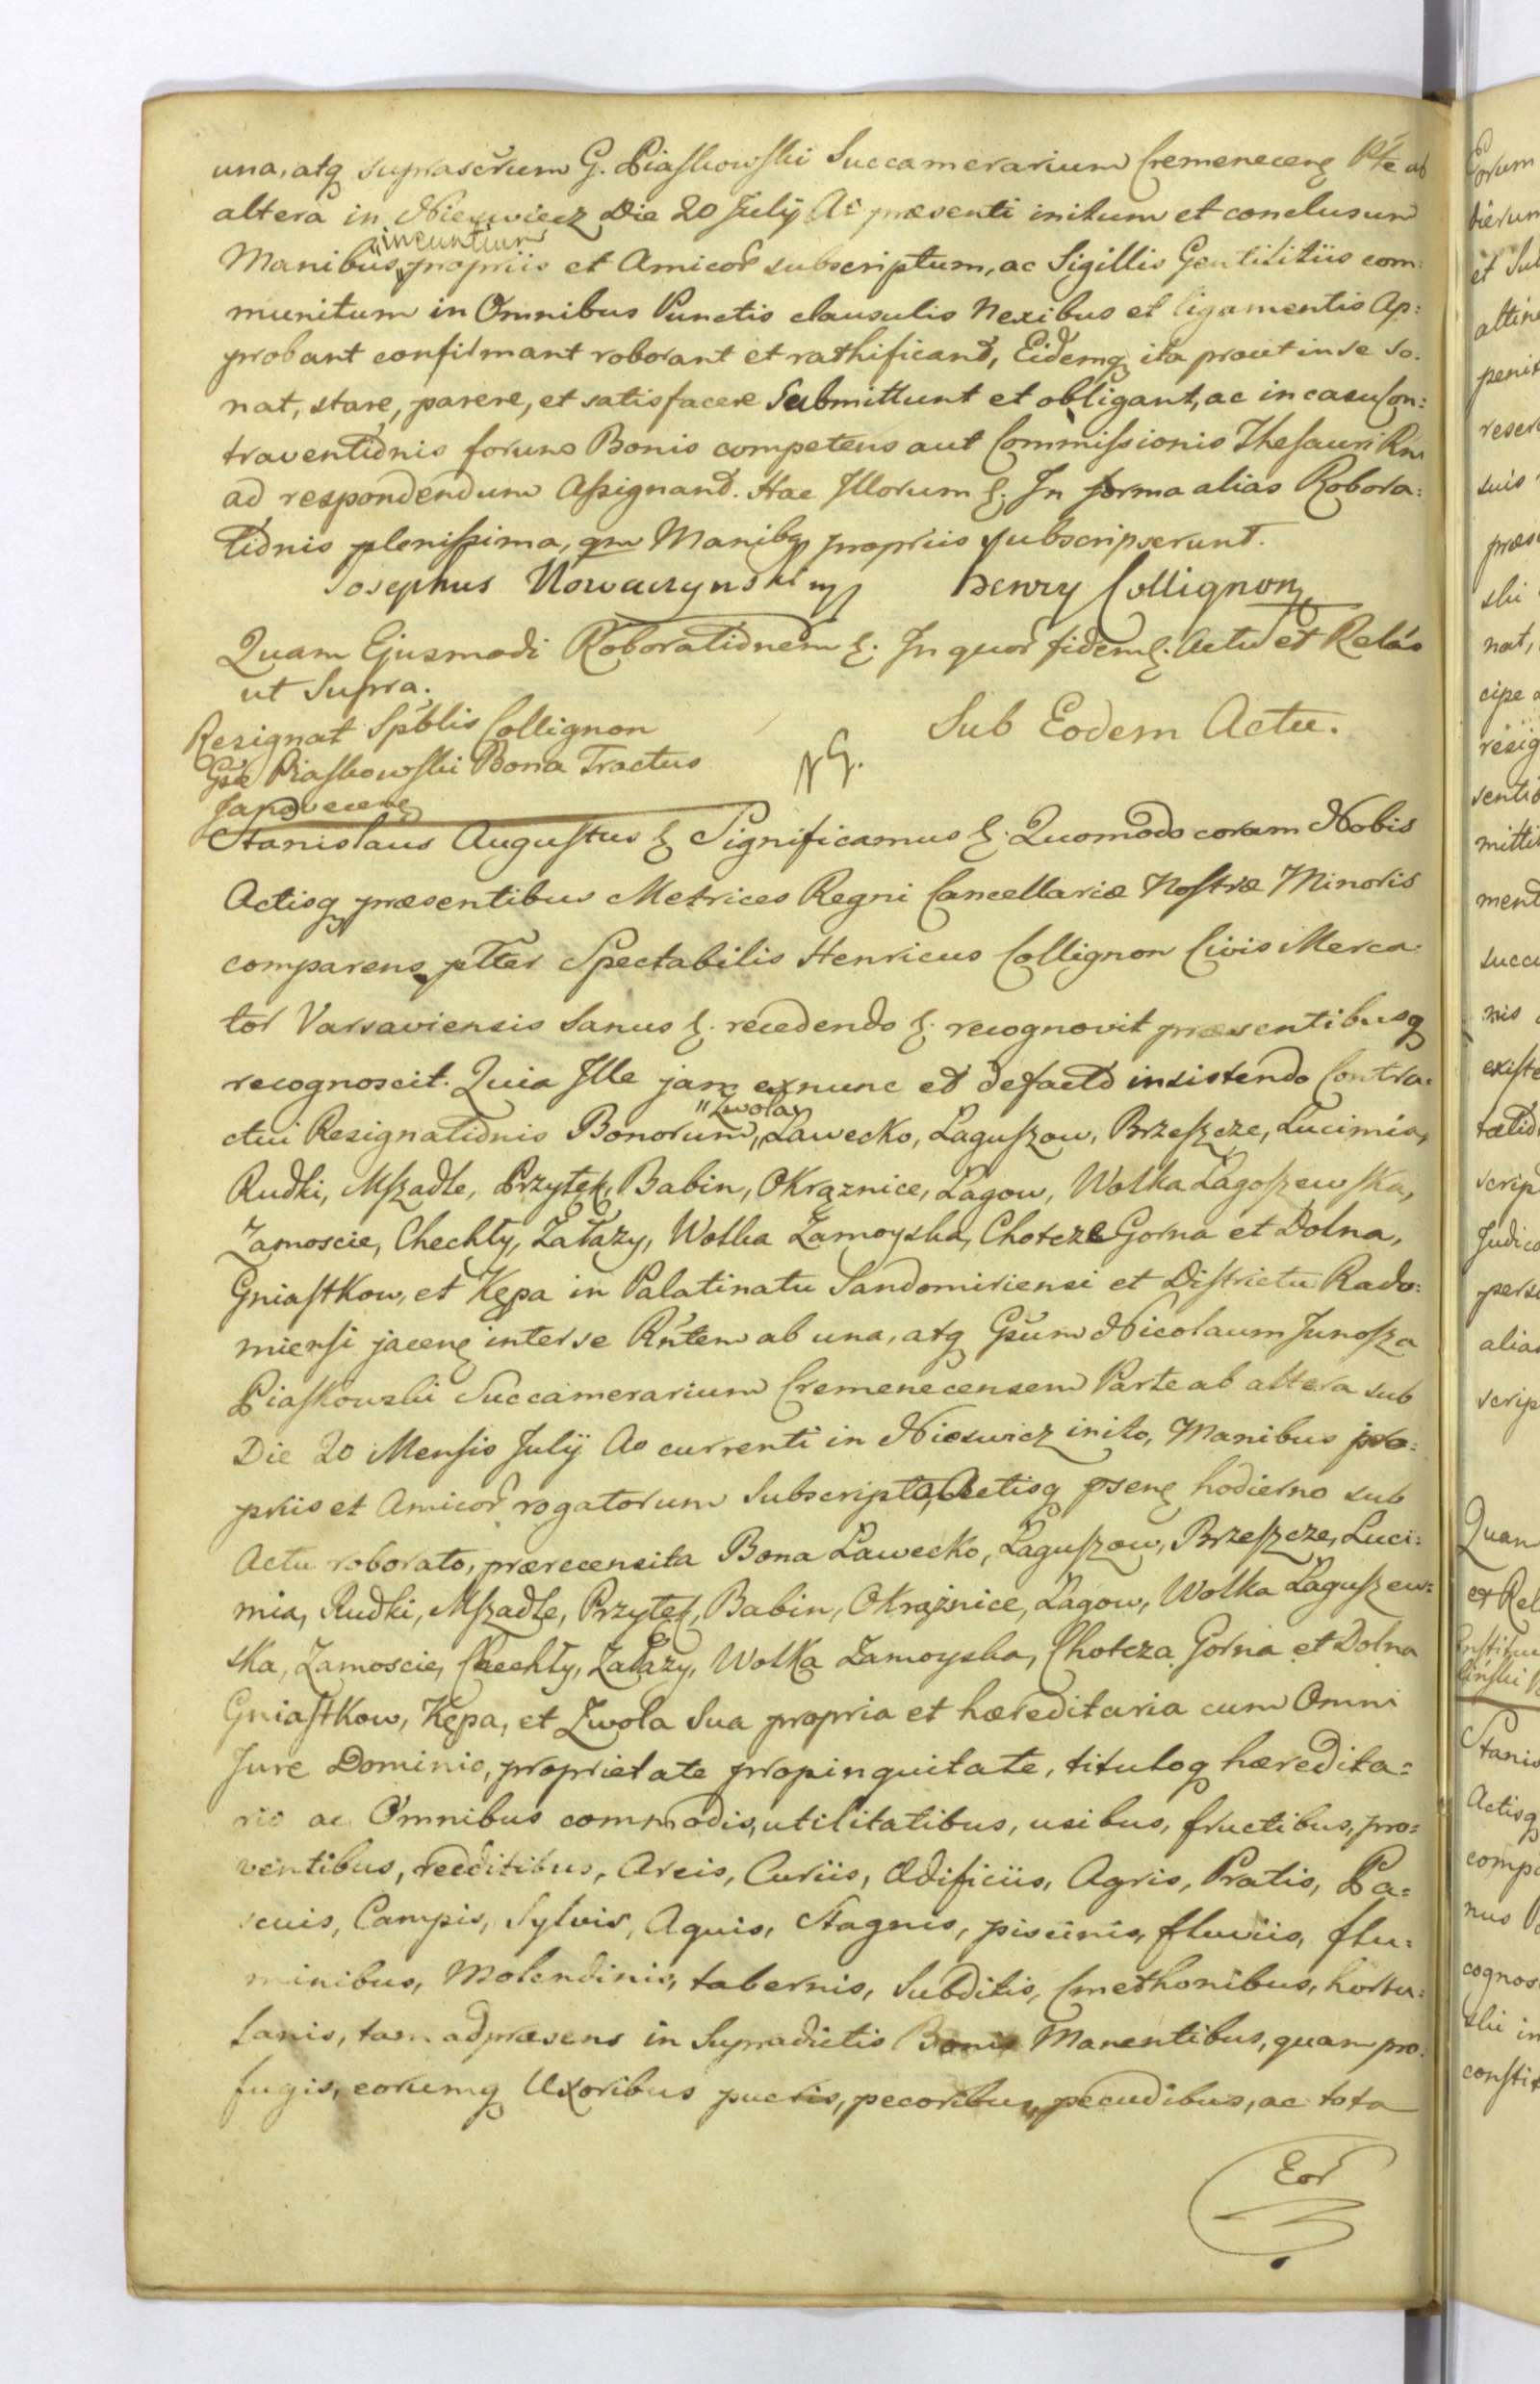 una, atq suprascrum G. Piaskowski Succamerarium Cremenecens Pte ab
altera in Nieswicz Die 20 July Ai praesenti initum et conclusum
ineuntium
Manibus propriis et Amicor subscriptum, ac Sigillis Gentilitiis com:
munitum in Omnibus Punctis clausulis Nexibus et ligamentis Ap:
probant confirmant roborant et rathificant, Eidemq ita prout in se so:
nat, stare, parere, et satisfacere Submittunt et obligant, ac in casu Con:
traventionis forum Bonis competens aut Commissionis Thesauri Rni
ad respondendum Assignand. Hac Illorum &. In forma alias Robora:
tionis plenissima, qm Manibq propriis subscripserunt.
Josephus Nowaczynski mp Henry Collignon
Quam Ejusmodi Roborationem &. In quor fidem &. Actu et Relao
ut Supra.
Resignat Spblis Collignon
Gso Piaskowski Bona Tractus
Janovecens
Sub Eodem Actu.
NG.
Stanislaus Augustus & Significamus &. Quomodo coram Nobis
Actisq praesentibus Metrices Regni Cancellariæ Nostræ Minoris
comparens plter Spectabilis Henricus Collignon Civis Merca:
tor Varsaviensis Sanus &. recedendo &. recognovit præsentibusq
recognoscit. Quia Ille jam exnunc et defacto insistendo Contra:
"Zwola
ctui Resignationis Bonorum, "Lawecko, Laguszow, Brzeszcze, Lucimia,
Rudki, Mszadle, Przyłęk, Babin, Okrąznice, Łagow, Wolka Łagoszewska,
Zamoscie, Chechły, Załazy, Wolka Zamoyska, Chotcze Gorna et Dolna,
Gniastkow, et Kępa in Palatinatu Sandomiriensi et Districtu Rado:
miensi jacens inter se Rntem ab una, atq Gsum Nicolaum Junosza
Piaskowski Succamerarium Cremenecensem Parte ab altera sub
Die 20 Mensis July Ao currenti in Nieswicz inito, Manibus pro:
priis et Amicor rogatorum Subscripto, Actisq psens hodierno sub
Actu roborato, prærecensita Bona Lawecko, Laguszow, Brzeszcze, Luci:
mia, Rudki, Mszadle, Przyłęk, Babin, Okrąznice, Łagow, Wolka Laguszew:
ska, Zamoscie, Chechły, Załazy, Wolka Zamoyska, Chotcza Gorna et Dolna
Gniastkow, Kępa, et Zwola Sua propria et hæreditaria cum Omni
Jure Dominio, proprietate propinquitate, tituloq hæredita:
rio ac Omnibus commodis, utilitatibus, usibus, fructibus, pro:
ventibus, redditibus, Areis, Curiis, Ædificiis, Agris, Pratis, Pa:
scuis, Campis, Sylvis, Aquis, Stagnis, piscinis, fluviis, flu:
minibus, Molendinis, tabernis, Subditis, Cmethonibus, hortu:
lanis, tam adpræsens in Supradictis Bonis Manentibus, quam pro:
fugis, eorumq Uxoribus pueris, pecoribus, pecudibus, ac tota
Eor